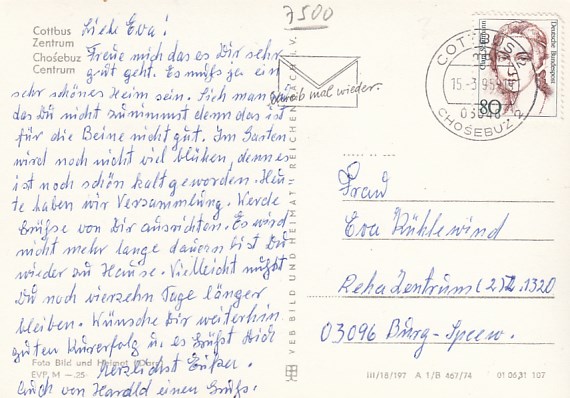 7500
Cottbus
Zentrum
Chośebuz
Centrum
Liebe Eva!
Freue mich das es Dir sehr
gut geht. Es muß ja ein
sehr schönes Heim sein. Sieh man zu
das Du nicht zunimmst denn das ist
für die Beine nicht gut. Im Garten
wird noch nicht viel blühen, denn es
ist noch schön kalt geworden. Heu-
te haben wir Versammlung. Werde
Grüße von Dir ausrichten. Es wird
nicht mehr lange dauern bist Du
wieder zu Hause. Vielleicht mußt
Du noch vierzehn Tage länger
bleiben. Wünsche Dir weiterhin
guten Kurerfolg u. es Grüßt Dich
herzlichst
Auch von Harald einen Gruß.
Foto Bild und Heimat
EVP M –.25
VEB BILD UND HEIMAT REICHENBACH I. V.
Schreib mal wieder.
COTTBUS
15.-3.95
03046
CHOŚEBUZ 2
Deutsche Bundespost
80
Frau
Eva Kühlewind
Reha Zentrum (2) Z. 1320
03096 Burg-Spreew.
III/18/197 A 1/B 467/74 01 06 31 107